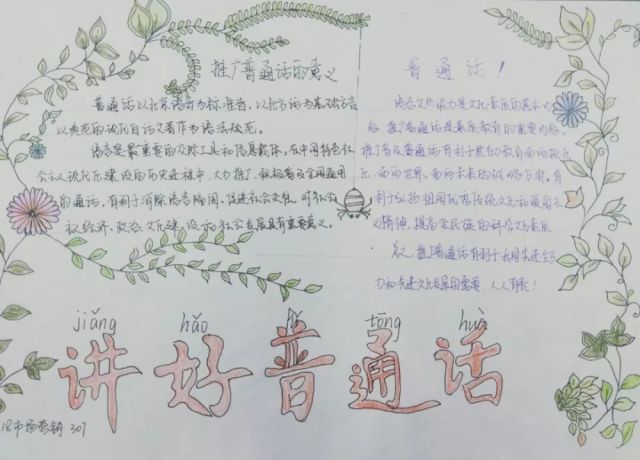 推广普通话的意义
普通话以北京语音为标准音，以北方话为基础方言
以典范的现代白话文著作为语法规范。
语言是最重要的交际工具和信息载体。在中国特色社
会主义现代化建设的历史进程中，大力推广、积极普及全国通用
的通话，有利于消除语言隔阂，促进社会交往，对社会
经济、政治、文化建设和社会发展具有重要意义。
普通话！
语言文字能力是文化素质的基本
推广普通话是素质教育的重要内容。
推广普及普通话有利于贯彻教育面向现代
化、面向世界、面向未来的战略方针，有
利于弘扬祖国优秀传统文化和爱国主
义精神，提高全民族的科学文化素质
推广普通话有利于我国先进生产
力和先进文化发展的需要 人人有责！
jiǎng hǎo pǔ tōng huà
讲好普通话
市场营销 307